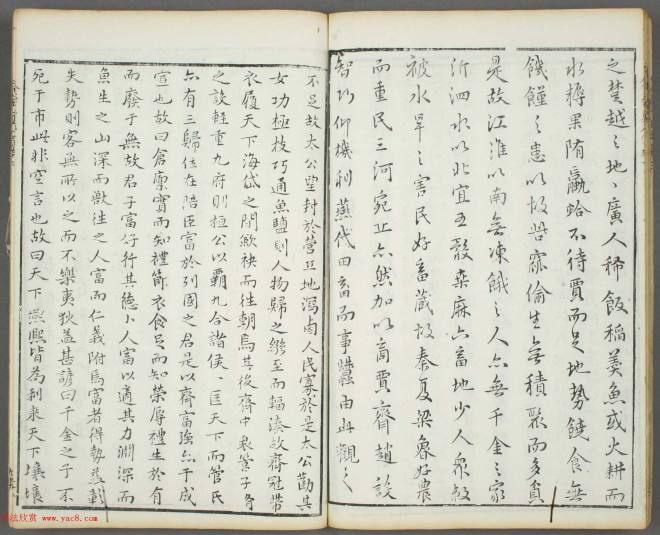 之楚越之地地廣人稀飯稻羹魚或火耕而
水耨果隋蠃蛤不待賈而足地勢饒食無
飢饉之患以故呰窳偷生無積聚而多貧
是故江淮以南無凍餓之人亦無千金之家
沂泗水以北宜五穀桑麻六畜地少人眾數
被水旱之害民好畜藏故秦夏梁魯好農
而重民三河宛丘亦然加以商賈齊趙設
智巧仰機利燕代田畜而事蠶由此觀之
不足故太公望封於營丘地瀉鹵人民寡於是太公勸其
女功極技巧通魚鹽則人物歸之繈至而輻湊故齊冠帶
衣履天下海岱之間斂袂而往朝焉其後齊中衰管子脩
之設輕重九府則桓公以霸九合諸侯一匡天下而管氏
亦有三歸位在陪臣富於列國之君是以齊富強亦于成
宣也故曰倉廩實而知禮節衣食足而知榮辱禮生於有
而廢于無故君子富好行其德小人富以適其力淵深而
魚生之山深而獸往之人富而仁義附焉富者得勢益彰
失勢則客無所以之而不樂夷狄益甚諺曰千金之子不
死于市此非空言也故曰天下熙熙皆為利來天下壤壤
书法欣赏 www.yac8.com